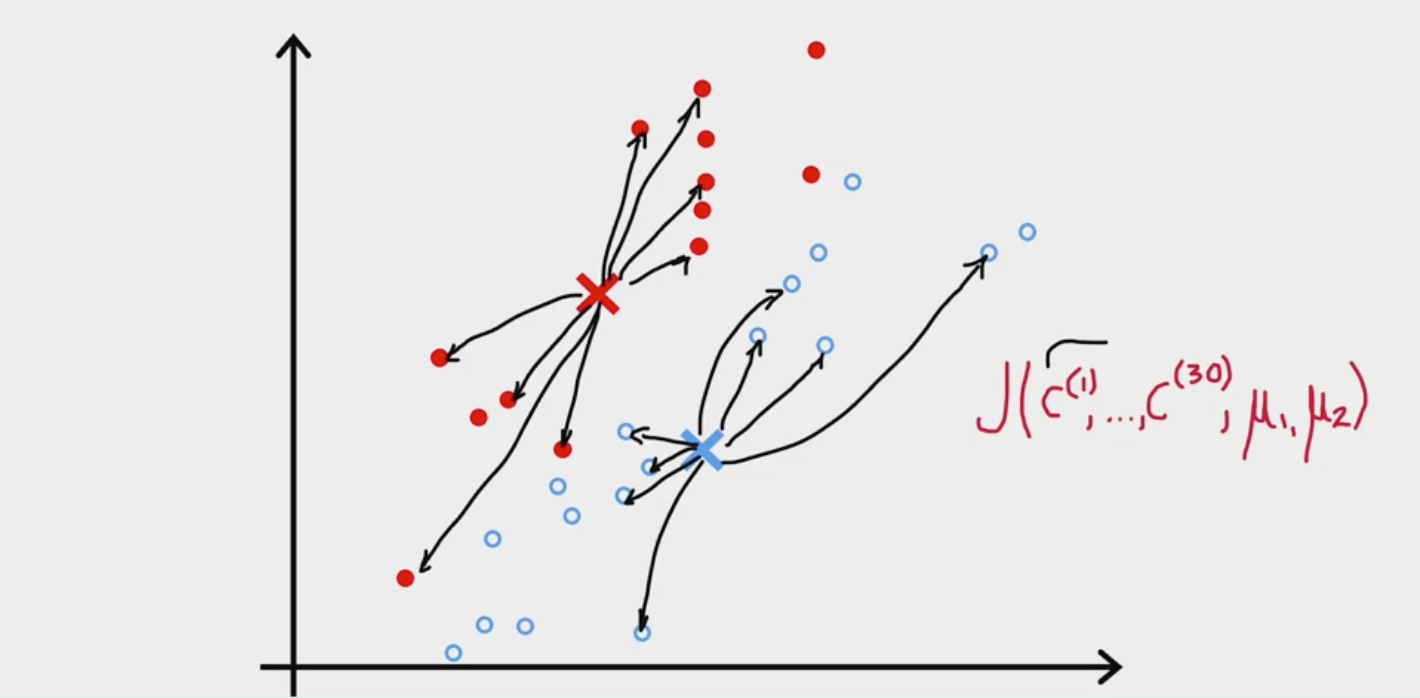 J(c⁽¹⁾, ..., c⁽³⁰⁾, μ₁, μ₂)